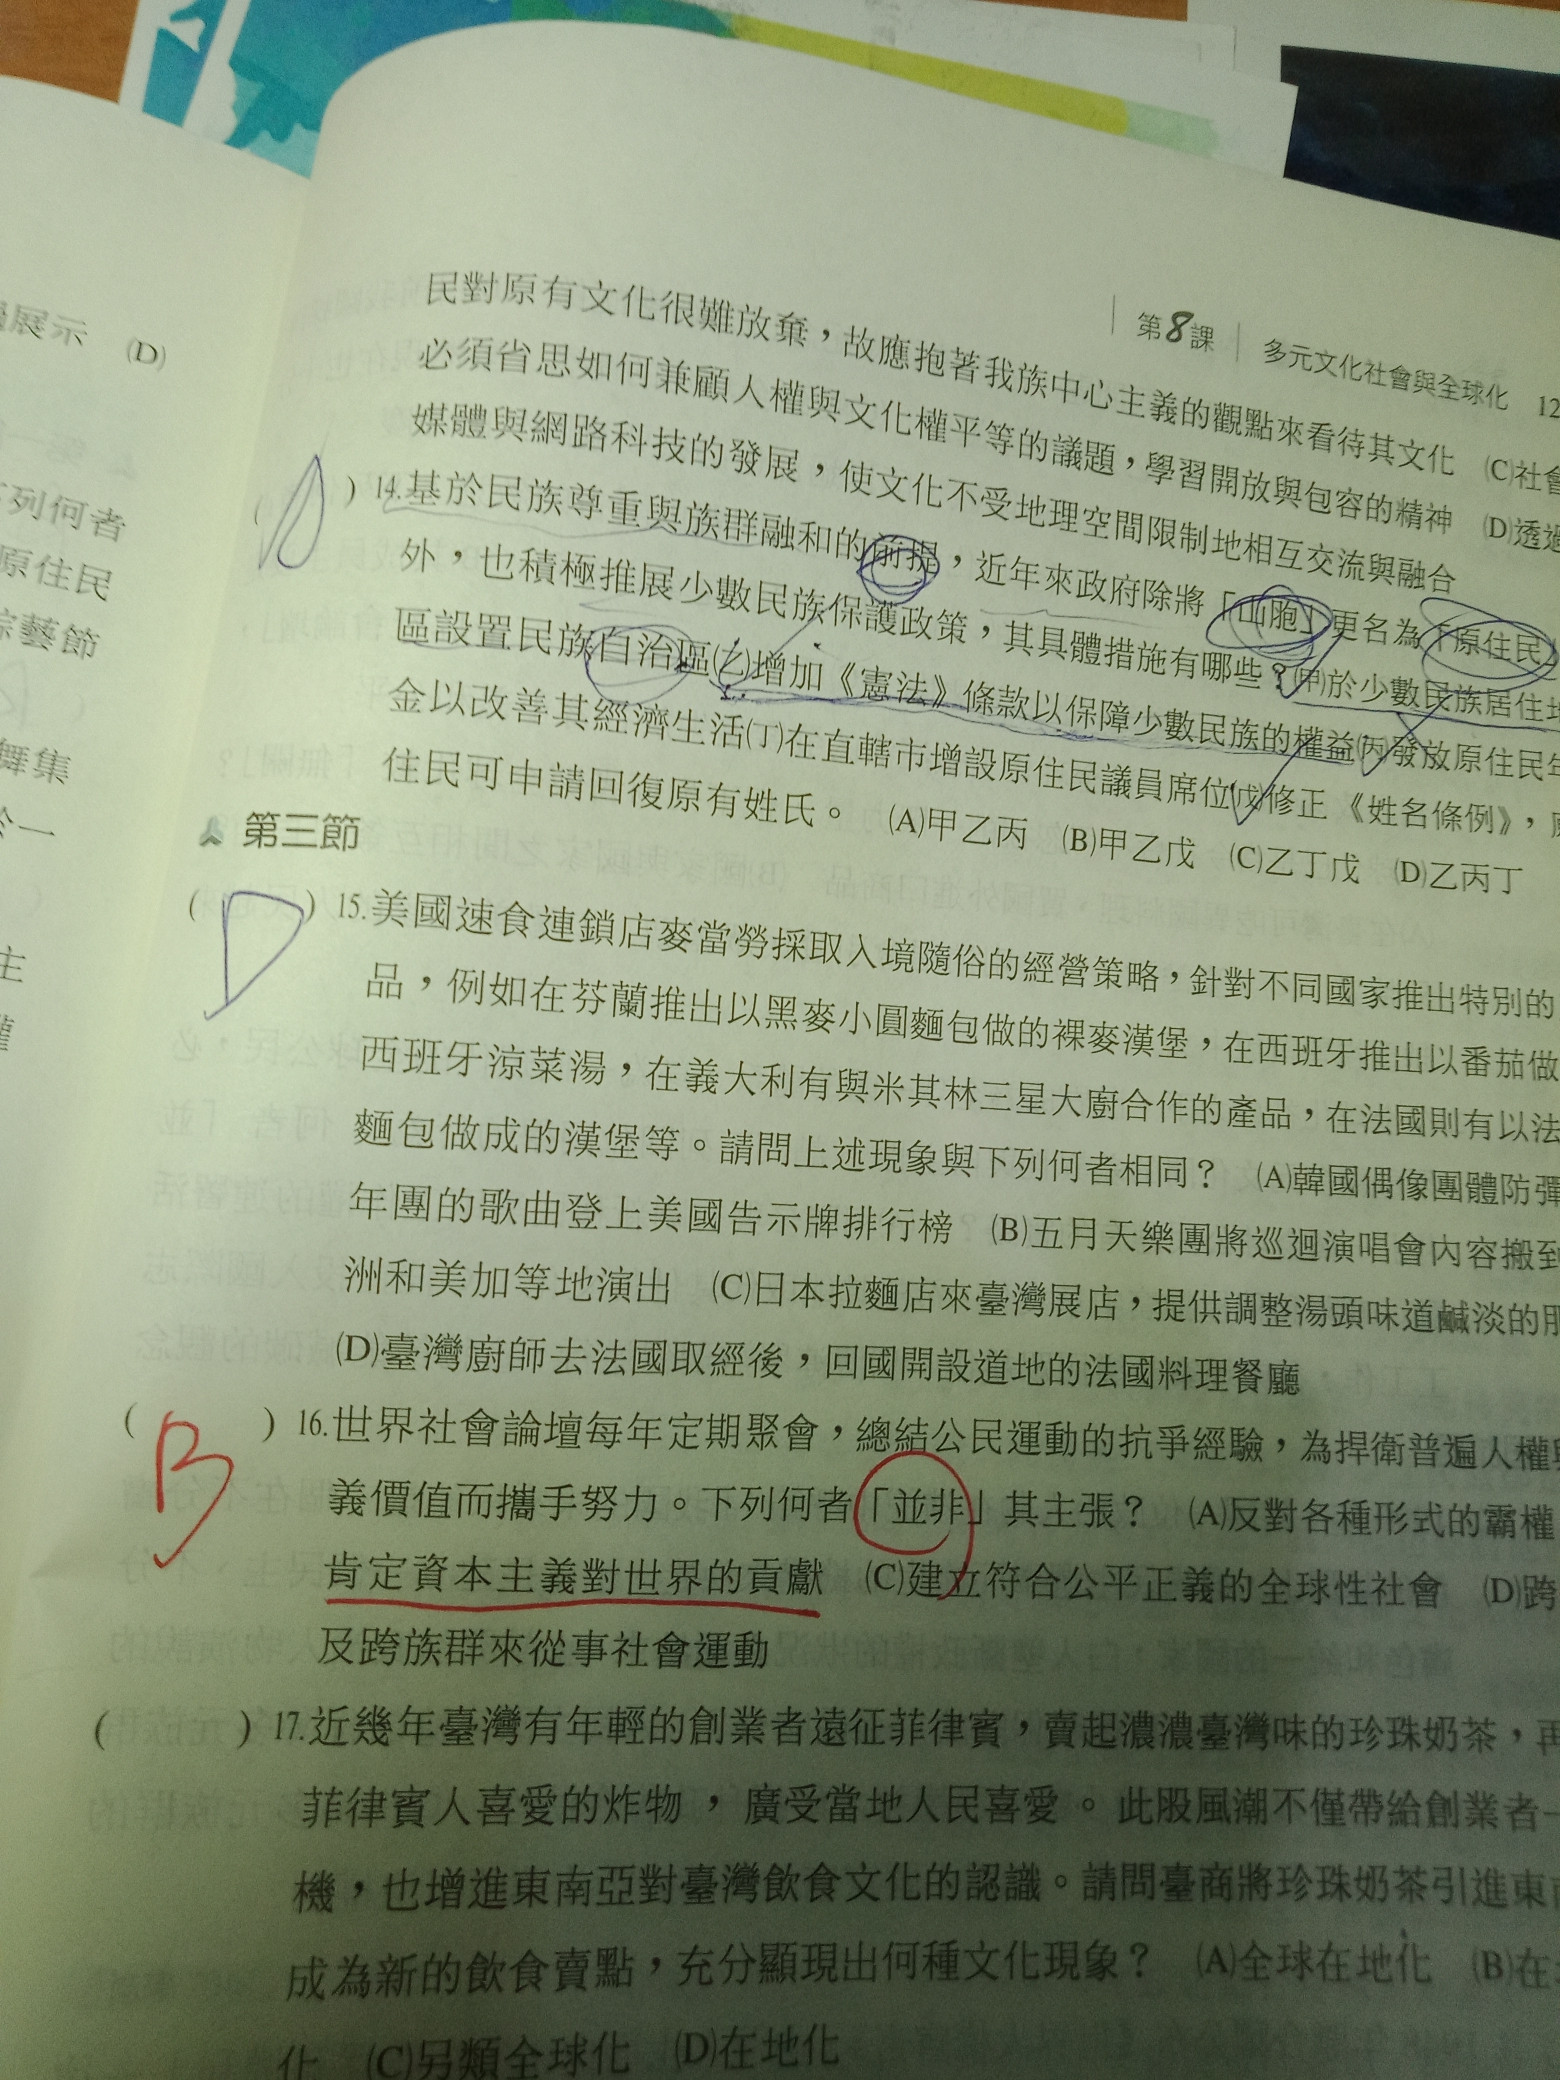 第8課 多元文化社會與全球化 12
民對原有文化很難放棄，故應抱著我族中心主義的觀點來看待其文化 (C)社會
必須省思如何兼顧人權與文化權平等的議題，學習開放與包容的精神 (D)透過
媒體與網路科技的發展，使文化不受地理空間限制地相互交流與融合
( ) 14.基於民族尊重與族群融和的前提，近年來政府除將「山胞」更名為「原住民」
外，也積極推展少數民族保護政策，其具體措施有哪些？(甲)於少數民族居住地
區設置民族自治區(乙)增加《憲法》條款以保障少數民族的權益(丙)發放原住民年
金以改善其經濟生活(丁)在直轄市增設原住民議員席位(戊)修正《姓名條例》，
住民可申請回復原有姓氏。 (A)甲乙丙 (B)甲乙戊 (C)乙丁戊 (D)乙丙丁
第三節
( D ) 15.美國速食連鎖店麥當勞採取入境隨俗的經營策略，針對不同國家推出特別的
品，例如在芬蘭推出以黑麥小圓麵包做的裸麥漢堡，在西班牙推出以番茄做
西班牙涼菜湯，在義大利有與米其林三星大廚合作的產品，在法國則有以法
麵包做成的漢堡等。請問上述現象與下列何者相同？ (A)韓國偶像團體防彈
年團的歌曲登上美國告示牌排行榜 (B)五月天樂團將巡迴演唱會內容搬到
洲和美加等地演出 (C)日本拉麵店來臺灣展店，提供調整湯頭味道鹹淡的服
(D)臺灣廚師去法國取經後，回國開設道地的法國料理餐廳
( B ) 16.世界社會論壇每年定期聚會，總結公民運動的抗爭經驗，為捍衛普遍人權與
義價值而攜手努力。下列何者「並非」其主張？ (A)反對各種形式的霸權
肯定資本主義對世界的貢獻 (C)建立符合公平正義的全球性社會 (D)跨
及跨族群來從事社會運動
( ) 17.近幾年臺灣有年輕的創業者遠征菲律賓，賣起濃濃臺灣味的珍珠奶茶，再
菲律賓人喜愛的炸物，廣受當地人民喜愛。此股風潮不僅帶給創業者一
機，也增進東南亞對臺灣飲食文化的認識。請問臺商將珍珠奶茶引進東南
成為新的飲食賣點，充分顯現出何種文化現象？ (A)全球在地化 (B)在
化 (C)另類全球化 (D)在地化
展示 (D)
下列何者
原住民
綜藝節
舞集
於一
主
權